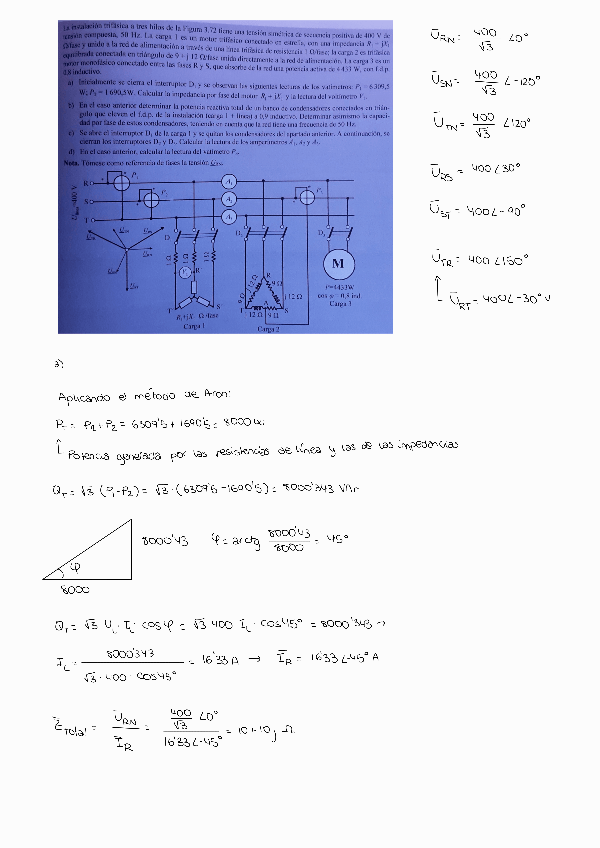 La instalación trifásica a tres hilos de la Figura 3.72 tiene una tensión simétrica de secuencia positiva de 400 V de
tensión compuesta, 50 Hz. La carga 1 es un motor trifásico conectado en estrella, con una impedancia R₁ + jX₁
Ω/fase y unido a la red de alimentación a través de una línea trifásica de resistencia 1 Ω/fase; la carga 2 es trifásica
equilibrada conectada en triángulo de 9 + j 12 Ω/fase unida directamente a la red de alimentación. La carga 3 es un
motor monofásico conectado entre las fases R y S, que absorbe de la red una potencia activa de 4 433 W, con f.d.p.
0,8 inductivo.
a) Inicialmente se cierra el interruptor D₁ y se observan las siguientes lecturas de los vatímetros: P₁ = 6309,5
W; P₂ = 1 690,5W. Calcular la impedancia por fase del motor R₁ + jX₁ y la lectura del voltímetro V₁.
b) En el caso anterior determinar la potencia reactiva total de un banco de condensadores conectados en trián-
gulo que eleven el f.d.p. de la instalación (carga 1 + línea) a 0,9 inductivo. Determinar asimismo la capaci-
dad por fase de estos condensadores, teniendo en cuenta que la red tiene una frecuencia de 50 Hz.
c) Se abre el interruptor D₁ de la carga 1 y se quitan los condensadores del apartado anterior. A continuación, se
cierran los interruptores D₂ y D₃. Calcular la lectura de los amperímetros A₁, A₂ y A₃.
d) En el caso anterior, calcular la lectura del vatímetro P₃.
Nota. Tómese como referencia de fases la tensión
R
S
T
P₁
A₁
A₂
A₃
D
D₂
D₃
1 Ω
1 Ω
1 Ω
R
T
S
R₁+jX₁ Ω/fase
Carga 1
9 Ω
j 12 Ω
R
9 Ω
j 12 Ω
T
A
S
j 12 Ω 9 Ω
Carga 2
M
P=4433W
cos φ = 0,8 ind.
Carga 3
U̅RN = 400/√3 ∠0°
U̅SN = 400/√3 ∠-120°
U̅TN = 400/√3 ∠120°
U̅RS = 400∠30°
U̅ST = 400∠-90°
U̅TR = 400∠150°
↑ U̅RT = 400∠-30° V
a)
Aplicando el método de Aron:
PT = P1 + P2 = 6309'5 + 1690'5 = 8000 W.
↑ Potencia generada por las resistencias de línea y las de las impedancias
QT = √3 (P1 - P2) = √3 · (6309'5 - 1690'5) = 8000'343 VAr
8000'43 φ = arctg 8000'43/8000 = 45°
φ
8000
QT = √3 UL · IL · cos φ = √3 400 IL · cos 45° = 8000'343 →
IL = 8000'343/√3 · 400 · cos 45° = 16'33 A → I̅R = 16'33∠-45° A
Z̅Total = U̅RN/I̅R = 400/√3 ∠0°/16'33∠-45° = 10+10j Ω